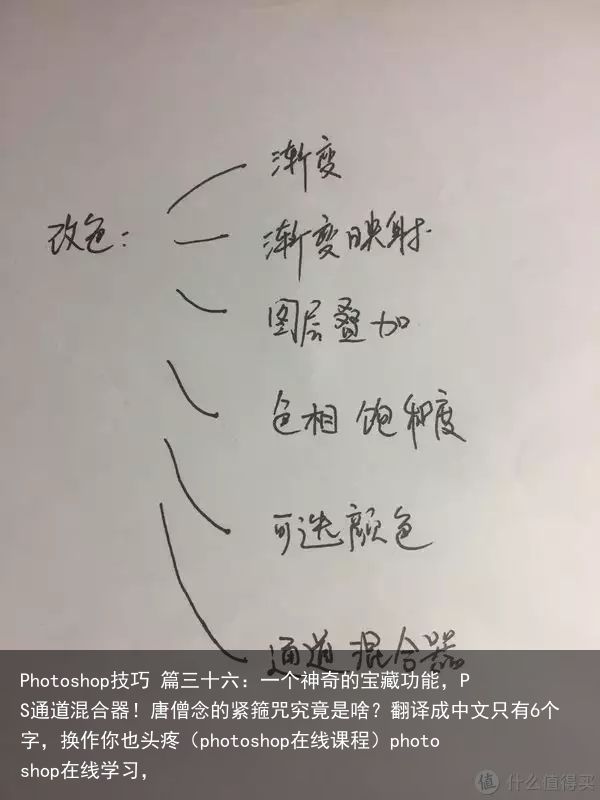 渐变
改色：
渐变映射
图层叠加
色相 饱和度
可选颜色
通道 混合器
Photoshop技巧 篇三十六：一个神奇的宝藏功能，P
S通道混合器！唐僧念的紧箍咒究竟是啥？翻译成中文只有6个
字，换作你也头疼（photoshop在线课程）photo
shop在线学习，
值 什么值得买